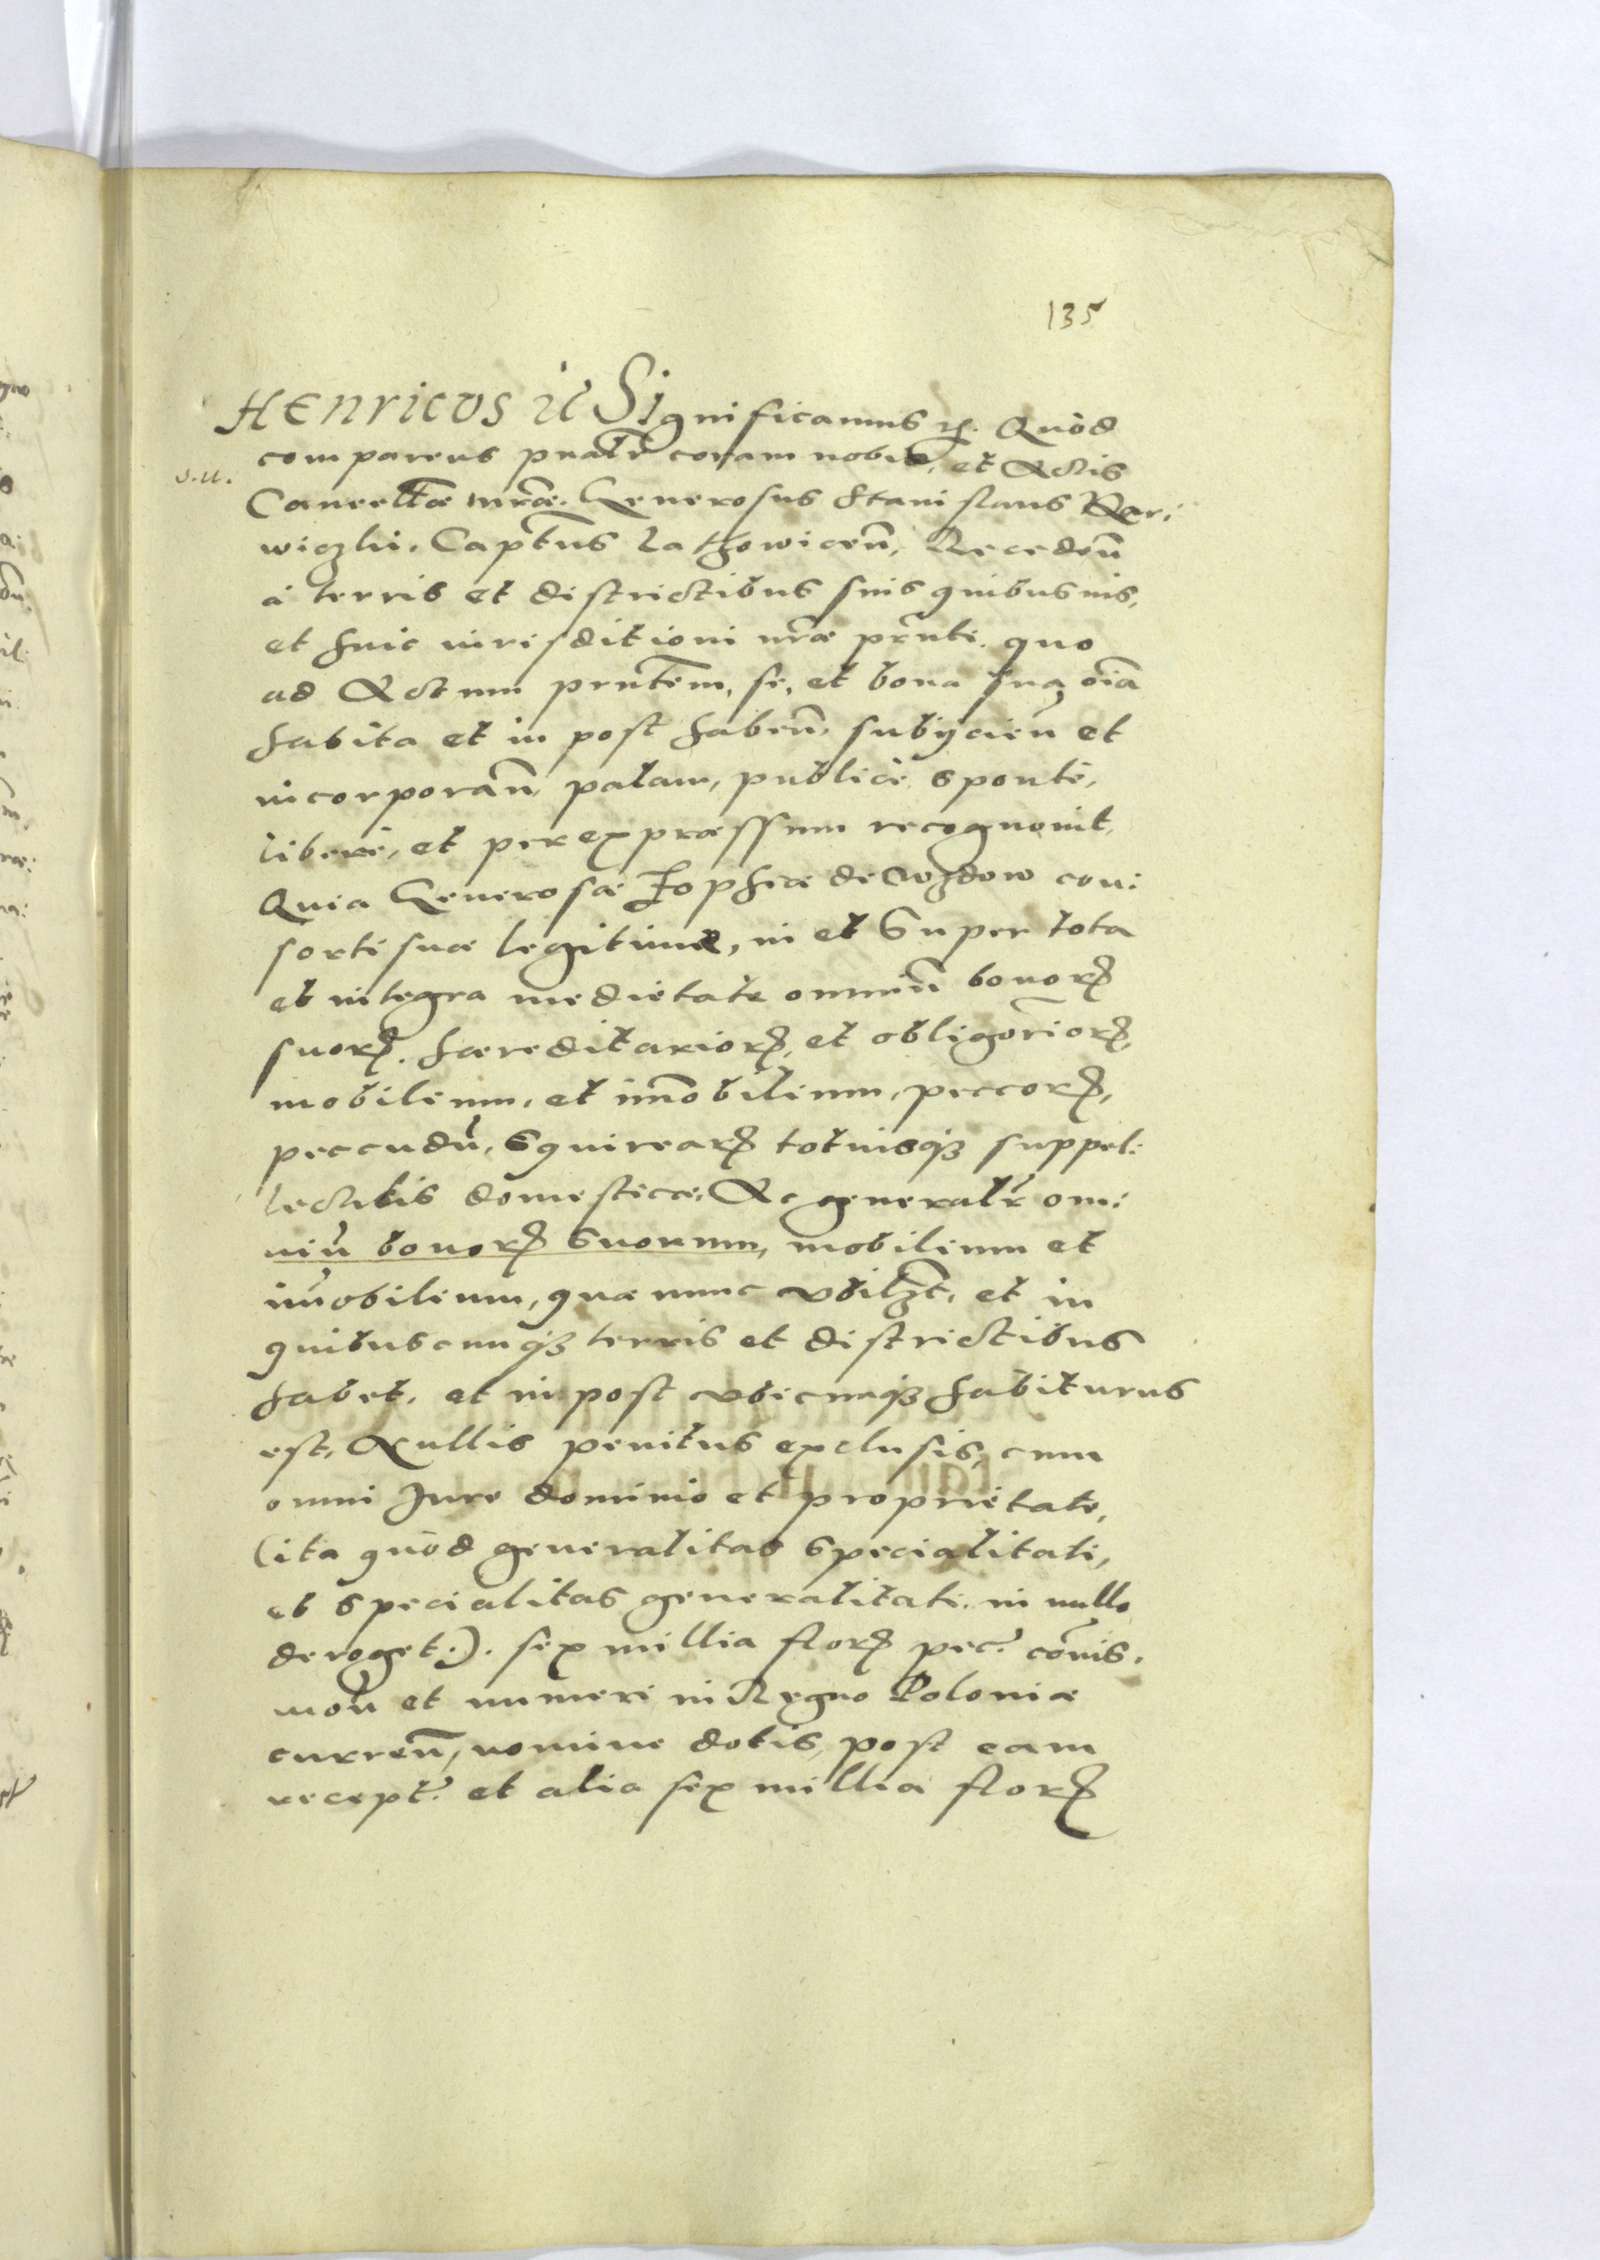 135
Henricus etc Significamus etc. Quòd
comparens pnalr coram nobis, et Actis
s.u.
Cancellæ nræ. Generosus Stanislaus
wiczki. Captus Latowicen, Recedeñ
à terris et districtibus suis quibusuis,
et huic iurisditioni nræ prnti. quo
ad Actum prntem, se, et bona sua oia
habita et in post habeñ, subijcien et
incorporañ, palam, publicè sponte,
liberè, et per expræssum recognouit,
Quia Generosæ Zophiæ de Ozdow con:
sorti suæ legitimæ, in et super tota
et integra medietate omniũ bonorꝝ
suorꝝ. hæreditariorꝝ, et obligoriorꝝ,
mobilium, et im̃obilium, peccorꝝ,
peccudũ, squirearꝝ totiusqꝫ suppel:
lectilis domesticæ, Ac generalr om:
niũ bonorꝝ suorum, mobilium et
im̃obilium, quæ nunc vbilzt, et in
quibuscunqꝫ terris et districtibus
habet. et in post vbicunqꝫ habiturus
est, Nullis penitus exclusis, cum
omni Jure dominio et proprietate,
(ita quòd generalitas specialitati,
et specialitas generalitati in nullo
deroget:). sex millia florꝝ pec. com̃is.
moñ et numeri in Regno Poloniæ
curreñ, nomine dotis, post eam
recept. et alia sex millia florꝝ